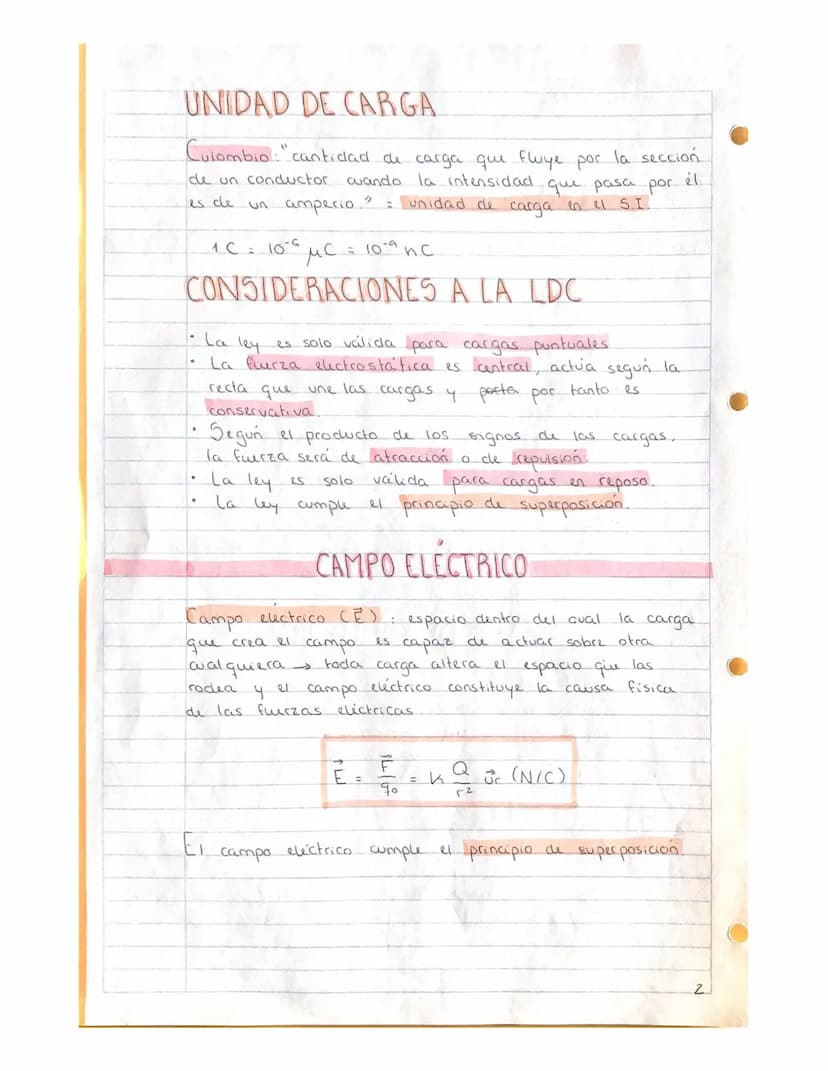 UNIDAD DE CARGA
Culombio: "cantidad de carga que fluye por la sección
de un conductor cuando la intensidad que pasa por él
es de un amperio." = unidad de carga en el S.I.
1 C = 10⁻⁶ μC = 10⁻⁹ nC
CONSIDERACIONES A LA LDC
· La ley es solo válida para cargas puntuales
· La fuerza electrostática es central, actúa según la
recta que une las cargas y por tanto es
conservativa.
· Según el producto de los signos de las cargas,
la fuerza será de atracción o de repulsión.
· La ley es solo válida para cargas en reposo.
· La ley cumple el principio de superposición.
CAMPO ELÉCTRICO
Campo eléctrico (E⃗) : espacio dentro del cual la carga
que crea el campo es capaz de actuar sobre otra
cualquiera → toda carga altera el espacio que las
rodea y el campo eléctrico constituye la causa física
de las fuerzas eléctricas.
E⃗ = F⃗/q₀ = K Q/r² u⃗r (N/C)
El campo eléctrico cumple el principio de superposición.
2